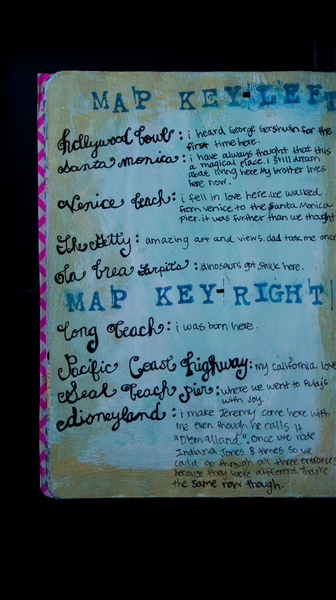 MAP KEY-LEFT
hollywood bowl: i heard George Gershwin for the
first time here.
santa monica: i have always thought that this
a magical place. I still dream
about living here. My brother lives
here now.
Venice beach: i fell in love here. we walked
from venice to the Santa Monica
Pier. it was further than we thought
The Getty: amazing art and views. dad took me once
La Brea Tarpits: dinosaurs got stuck here.
MAP KEY-RIGHT
Long Beach: i was born here.
Pacific Coast Highway: my california love
Seal Beach Pier: where we went to Ruby's
with Joy.
disneyland: i make Jeremy come here with
me even though he calls it
Once we rode
Indiana Jones 8 times so we
could go through all three entrances
because they were different. They're
the same now though.